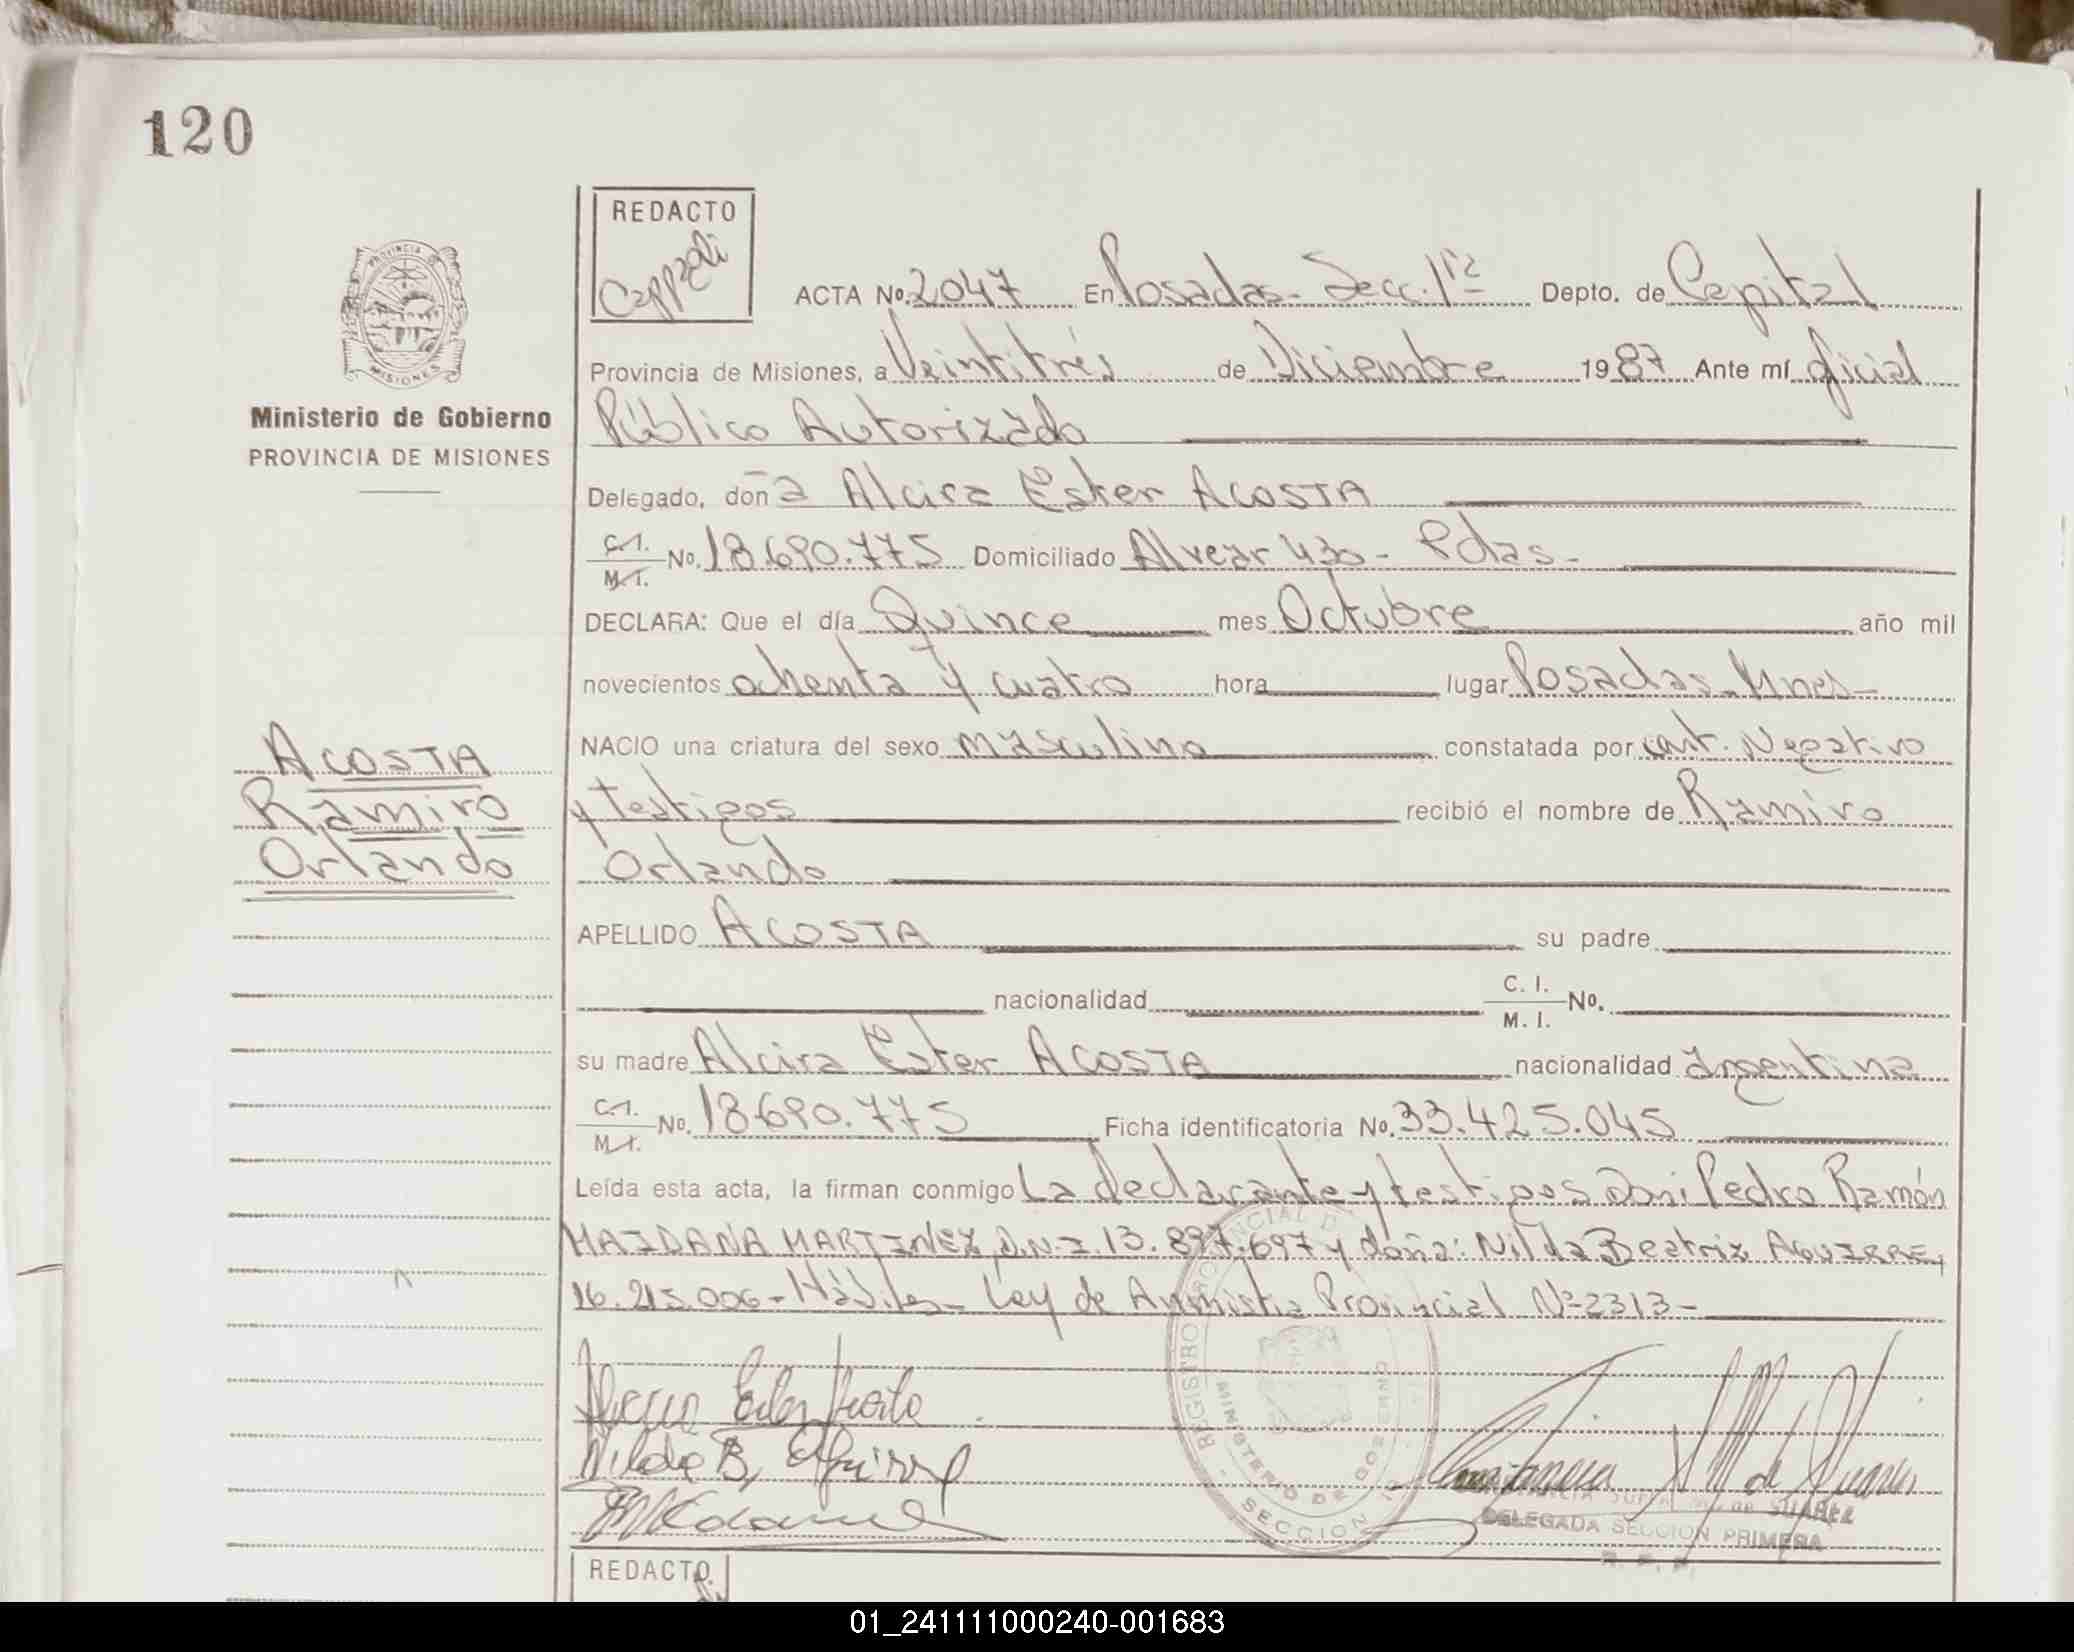 120
REDACTO
Cappali
ACTA No. 2047 En Posadas - Secc. 1ra Depto. de Capital
Provincia de Misiones, a Veintitrés de Diciembre 1987 Ante mí oficial
Público Autorizado
PROVINCIA
MISIONES
Ministerio de Gobierno
PROVINCIA DE MISIONES
Delegado, doña Alcira Ester ACOSTA
C.I. M.I. No. 18.690.775 Domiciliado Alvear 430 - Pdas -
DECLARA: Que el día Quince mes Octubre año mil
novecientos ochenta y cuatro hora lugar Posadas - Mnes -
ACOSTA
Ramiro
Orlando
NACIO una criatura del sexo masculino constatada por cert. Negativo
y testigos recibió el nombre de Ramiro
Orlando
APELLIDO ACOSTA su padre
nacionalidad C. I. M. I. No.
su madre Alcira Ester ACOSTA nacionalidad argentina
C.I. M.I. No. 18690.775 Ficha identificatoria No. 33.425.045
Leída esta acta, la firman conmigo La declarante y testigos Don: Pedro Ramón
MAIDANA MARTINEZ D.N.I. 13.897.697 y doña: Nilda Beatriz AGUIRRE,
16.215.006 - Hábiles - Ley de Anmistia Provincial Nº 2313 -
REGISTRO PROVINCIAL D
MINISTERIO DE GOBIERNO
SECCION
Nilda B. Aguirre
SUAREZ
DELEGADA SECCION PRIMERA
REDACTO
01_241111000240-001683